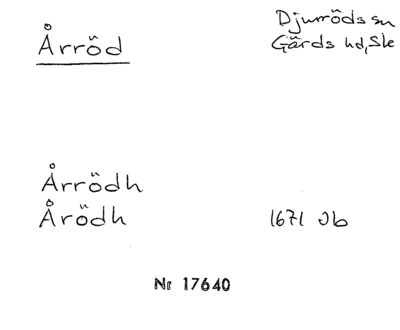 Årröd
Djurröds sn
Gärds hd, Skå
Årrödh
Årödh 1671 Jb
Nr 17640